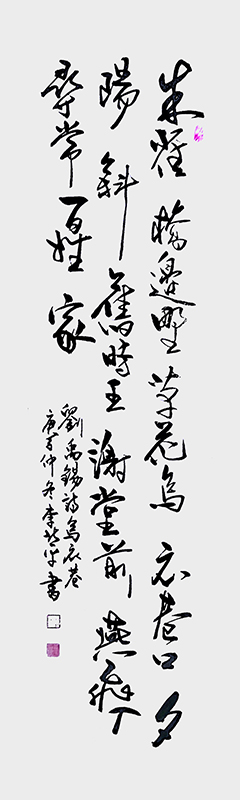 朱雀橋邊野草花烏衣巷口夕
陽斜舊時王謝堂前燕飛入
尋常百姓家
劉禹錫詩烏衣巷
庚仲冬李平書